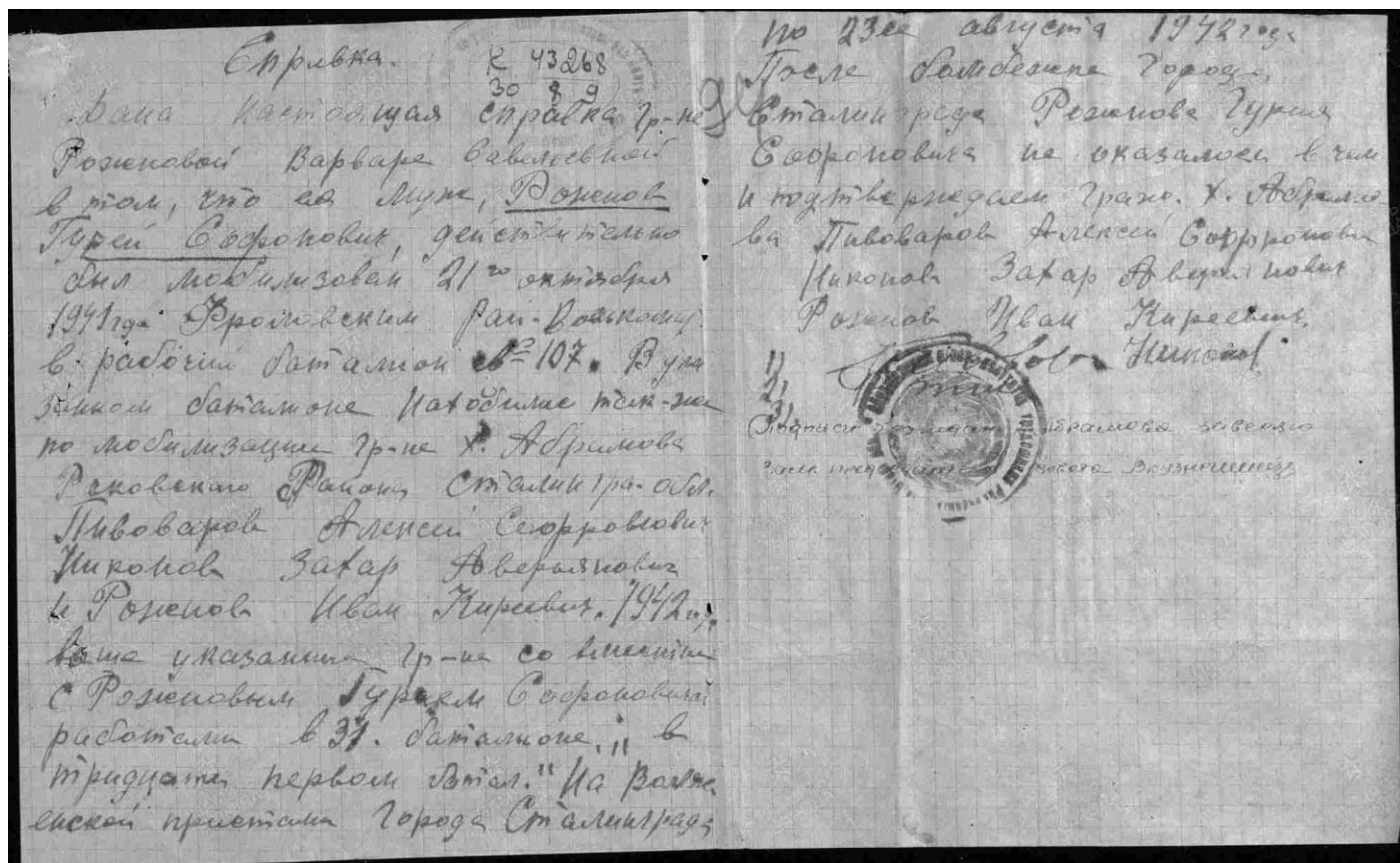 Справка.
К 43268
30 8 9
94
Дана настоящая справка гр-не
Роженовой Варваре Савельевной
в том, что ее муж, Роженов
Гурей Софонович, действительно
был мобилизован 21го октября
1941 года Фроловским Рай-Военкомом
в рабочий баталион №107. В ука
занном баталионе находились так-же
по мобилизации гр-не х. Абрамова
Раковского Района Сталингра. обл.
Пивоваров Алексей Софронович
Никонов Захар Аверьянович
и Роженов Иван Киреевич. 1942 год.
выше указанные гр-не со вместно
с Роженовым Гуреем Софоновичем
работали в 31. баталионе, "в
тридцать первом батал." На Волж
енской пристани Города Сталинграда
по 23ее августа 1942 года
После бомбежки Города
Сталинграда Роженова Гурея
Софроновича не оказалось в чем
и подтверждаем граж. х. Абрамо
ва Пивоваров Алексей Софронович
Никонов Захар Аверьянович
Роженов Иван Киреевич.
1)
2)
3)
Никонов
Подписи граждан х. Абрамова заверяю